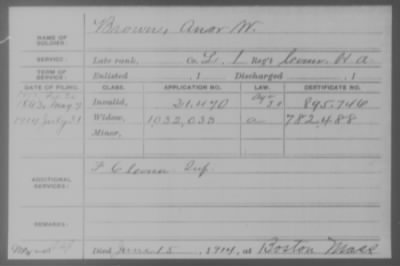 NAME OF SOLDIER: Brown, W.
SERVICE: Late rank, Co. L, 1 Reg't Conn. H. A.
TERM OF SERVICE: Enlisted , 1 Discharged , 1
DATE OF FILING. CLASS. APPLICATION NO. LAW. CERTIFICATE NO.
1863, May 7 Invalid, 21,470 895,746
1914 July 31 Widow, 1,032,033 a 782,488
Minor,
ADDITIONAL SERVICES: F Conn. Inf.
REMARKS:
Died June 15, 1914, at Boston Mass